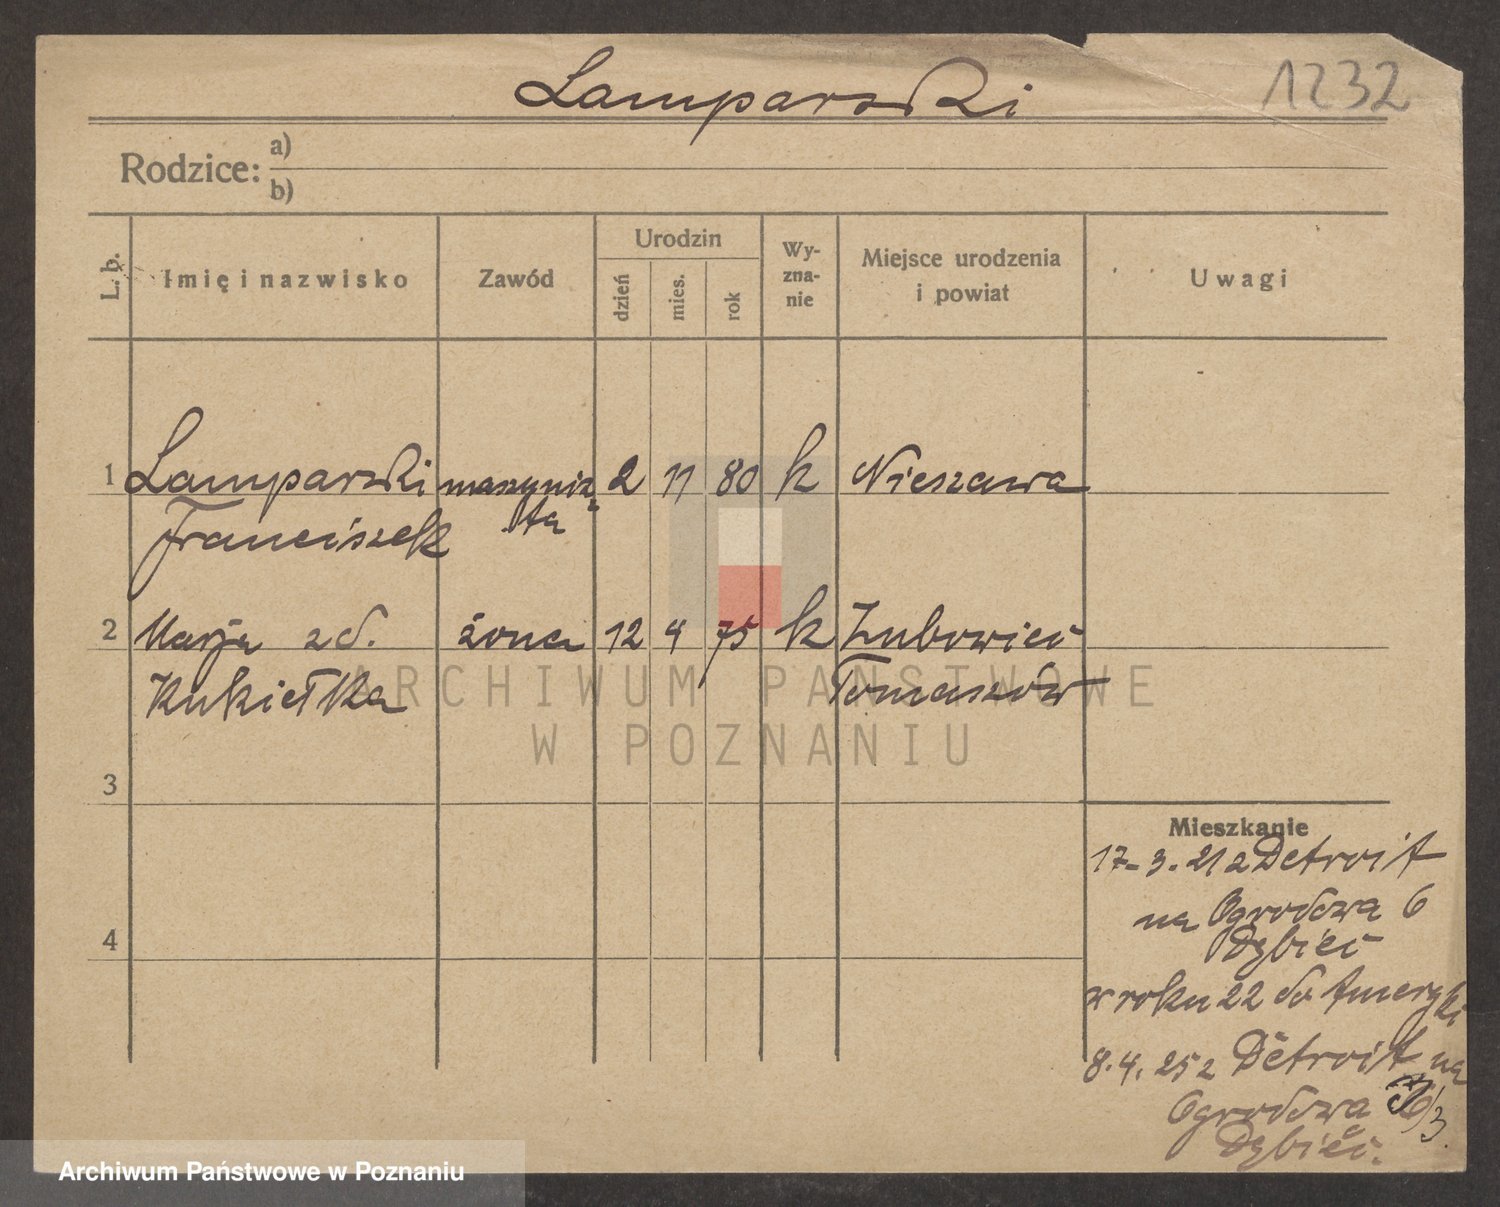 Lamparski
1232
Rodzice: a)
b)
L. b.
Imię i nazwisko
Zawód
Urodzin
dzień
mies.
rok
Wy-
zna-
nie
Miejsce urodzenia
i powiat
Uwagi
1 Lamparski maszynis 2 11 80 k Nieszawa
Franciszek ta
2 Marja zd. żona 12 4 75 k Łubowiec
Kukiełka Tomaszów
3
4
Mieszkanie
17-3. 21 z Detroit
na Ogrodowa 6
Dębiec
w roku 22 do Ameryki
8.4. 25 z Detroit na
Ogrodowa
Dębiec.
ARCHIWUM PAŃSTWOWE
W POZNANIU
Archiwum Państwowe w Poznaniu